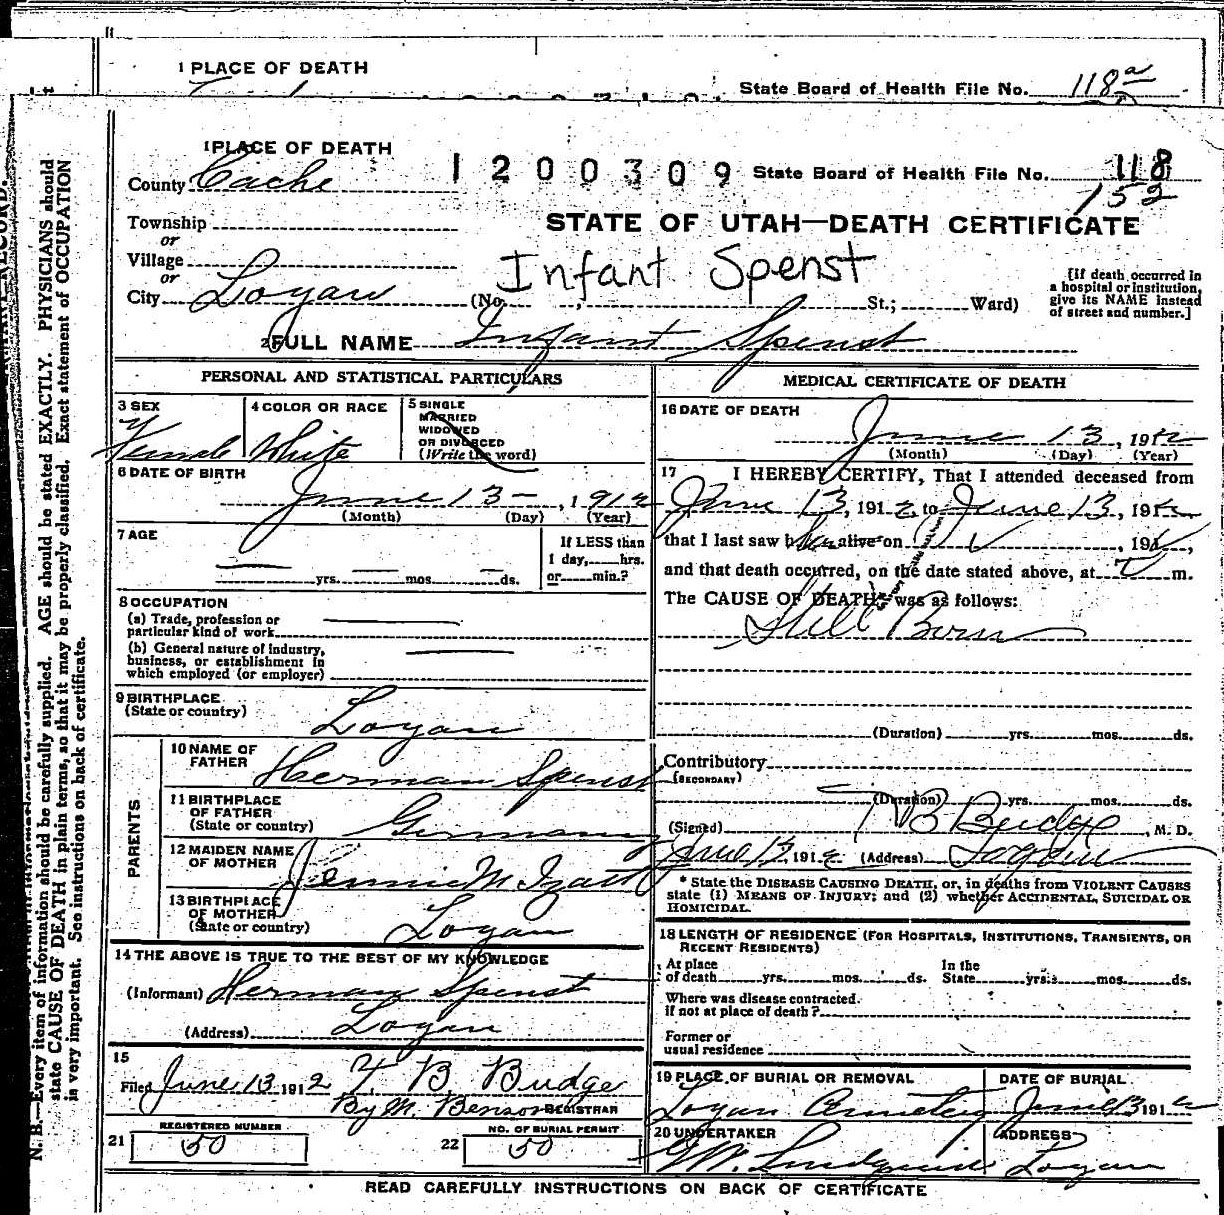 1 PLACE OF DEATH
State Board of Health File No. 118a
1 PLACE OF DEATH
County Cache
1200309
State Board of Health File No. 118
152
Township
or
Village
or
City Logan
STATE OF UTAH—DEATH CERTIFICATE
Infant Spenst
(No. , St.; Ward)
[If death occurred in
a hospital or institution,
give its NAME instead
of street and number.]
2 FULL NAME Infant Spenst
PERSONAL AND STATISTICAL PARTICULARS
3 SEX
Female
4 COLOR OR RACE
White
5 SINGLE
MARRIED
WIDOWED
OR DIVORCED
(Write the word)
6 DATE OF BIRTH
June 13 — , 1912
(Month) (Day) (Year)
7 AGE
yrs. mos. ds.
If LESS than
1 day, hrs.
or min.?
8 OCCUPATION
(a) Trade, profession or
particular kind of work
(b) General nature of industry,
business, or establishment in
which employed (or employer)
9 BIRTHPLACE
(State or country)
Logan
PARENTS
10 NAME OF
FATHER
Herman Spenst
11 BIRTHPLACE
OF FATHER
(State or country)
Germany
12 MAIDEN NAME
OF MOTHER
Jennie M. Izatt
13 BIRTHPLACE
OF MOTHER
(State or country)
Logan
14 THE ABOVE IS TRUE TO THE BEST OF MY KNOWLEDGE
(Informant) Herman Spenst
(Address) Logan
15
Filed June 13 1912 T. B. Budge
By M. Benson REGISTRAR
21 REGISTERED NUMBER
50
22 NO. OF BURIAL PERMIT
50
MEDICAL CERTIFICATE OF DEATH
16 DATE OF DEATH
June 13, 1912
(Month) (Day) (Year)
17 I HEREBY CERTIFY, That I attended deceased from
June 13, 1912, to June 13, 1912
that I last saw h alive on , 191 ,
and that death occurred, on the date stated above, at m.
The CAUSE OF DEATH* was as follows:
Still Born
(Duration) yrs. mos. ds.
Contributory
(SECONDARY)
(Duration) yrs. mos. ds.
(Signed) T B Budge, M. D.
June 13, 1912 (Address) Logan
* State the DISEASE CAUSING DEATH, or, in deaths from VIOLENT CAUSES
state (1) MEANS OF INJURY; and (2) whether ACCIDENTAL, SUICIDAL OR
HOMICIDAL.
18 LENGTH OF RESIDENCE (FOR HOSPITALS, INSTITUTIONS, TRANSIENTS, OR
RECENT RESIDENTS)
At place
of death yrs. mos. ds.
In the
State yrs. mos. ds.
Where was disease contracted.
if not at place of death?
Former or
usual residence
19 PLACE OF BURIAL OR REMOVAL
Logan Cemetery
DATE OF BURIAL
June 13 1912
20 UNDERTAKER
ADDRESS
Logan
READ CAREFULLY INSTRUCTIONS ON BACK OF CERTIFICATE
N. B.—Every item of information should be carefully supplied. AGE should be stated EXACTLY. PHYSICIANS should
state CAUSE OF DEATH in plain terms, so that it may be properly classified. Exact statement of OCCUPATION
is very important. See instructions on back of certificate.